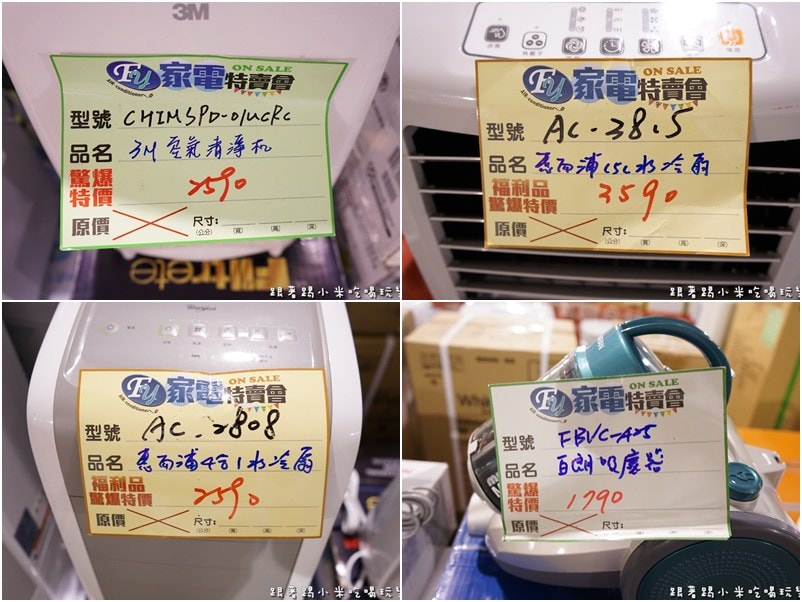 3M
Fu 家電特賣會
ON SALE
Air conditioner
型號 CHIMSPD-01UCRC
品名 3M 空氣清淨机
驚爆
特價 2590
原價
尺寸:
(公分) (寬) (高) (深)
Filtrete
跟著踢小米吃喝玩樂
Fu 家電特賣會
ON SALE
Air conditioner
型號 AC-3815
品名 惠而浦15L水冷扇
福利品
驚爆特價 3590
原價
尺寸:
(公分) (寬) (高) (深)
跟著踢小米吃喝玩樂
Whirlpool
Fu 家電特賣會
ON SALE
Air conditioner
型號 AC-2808
品名 惠而浦4合1水冷扇
福利品
驚爆特價 2590
原價
尺寸:
(公分) (寬) (高) (深)
跟著踢小米吃喝玩樂
Fu 家電特賣會
ON SALE
Air conditioner
型號 FBVC-A25
品名 百朗吸塵器
驚爆
特價 1790
原價
尺寸:
(公分) (寬) (高) (深)
跟著踢小米吃喝玩樂